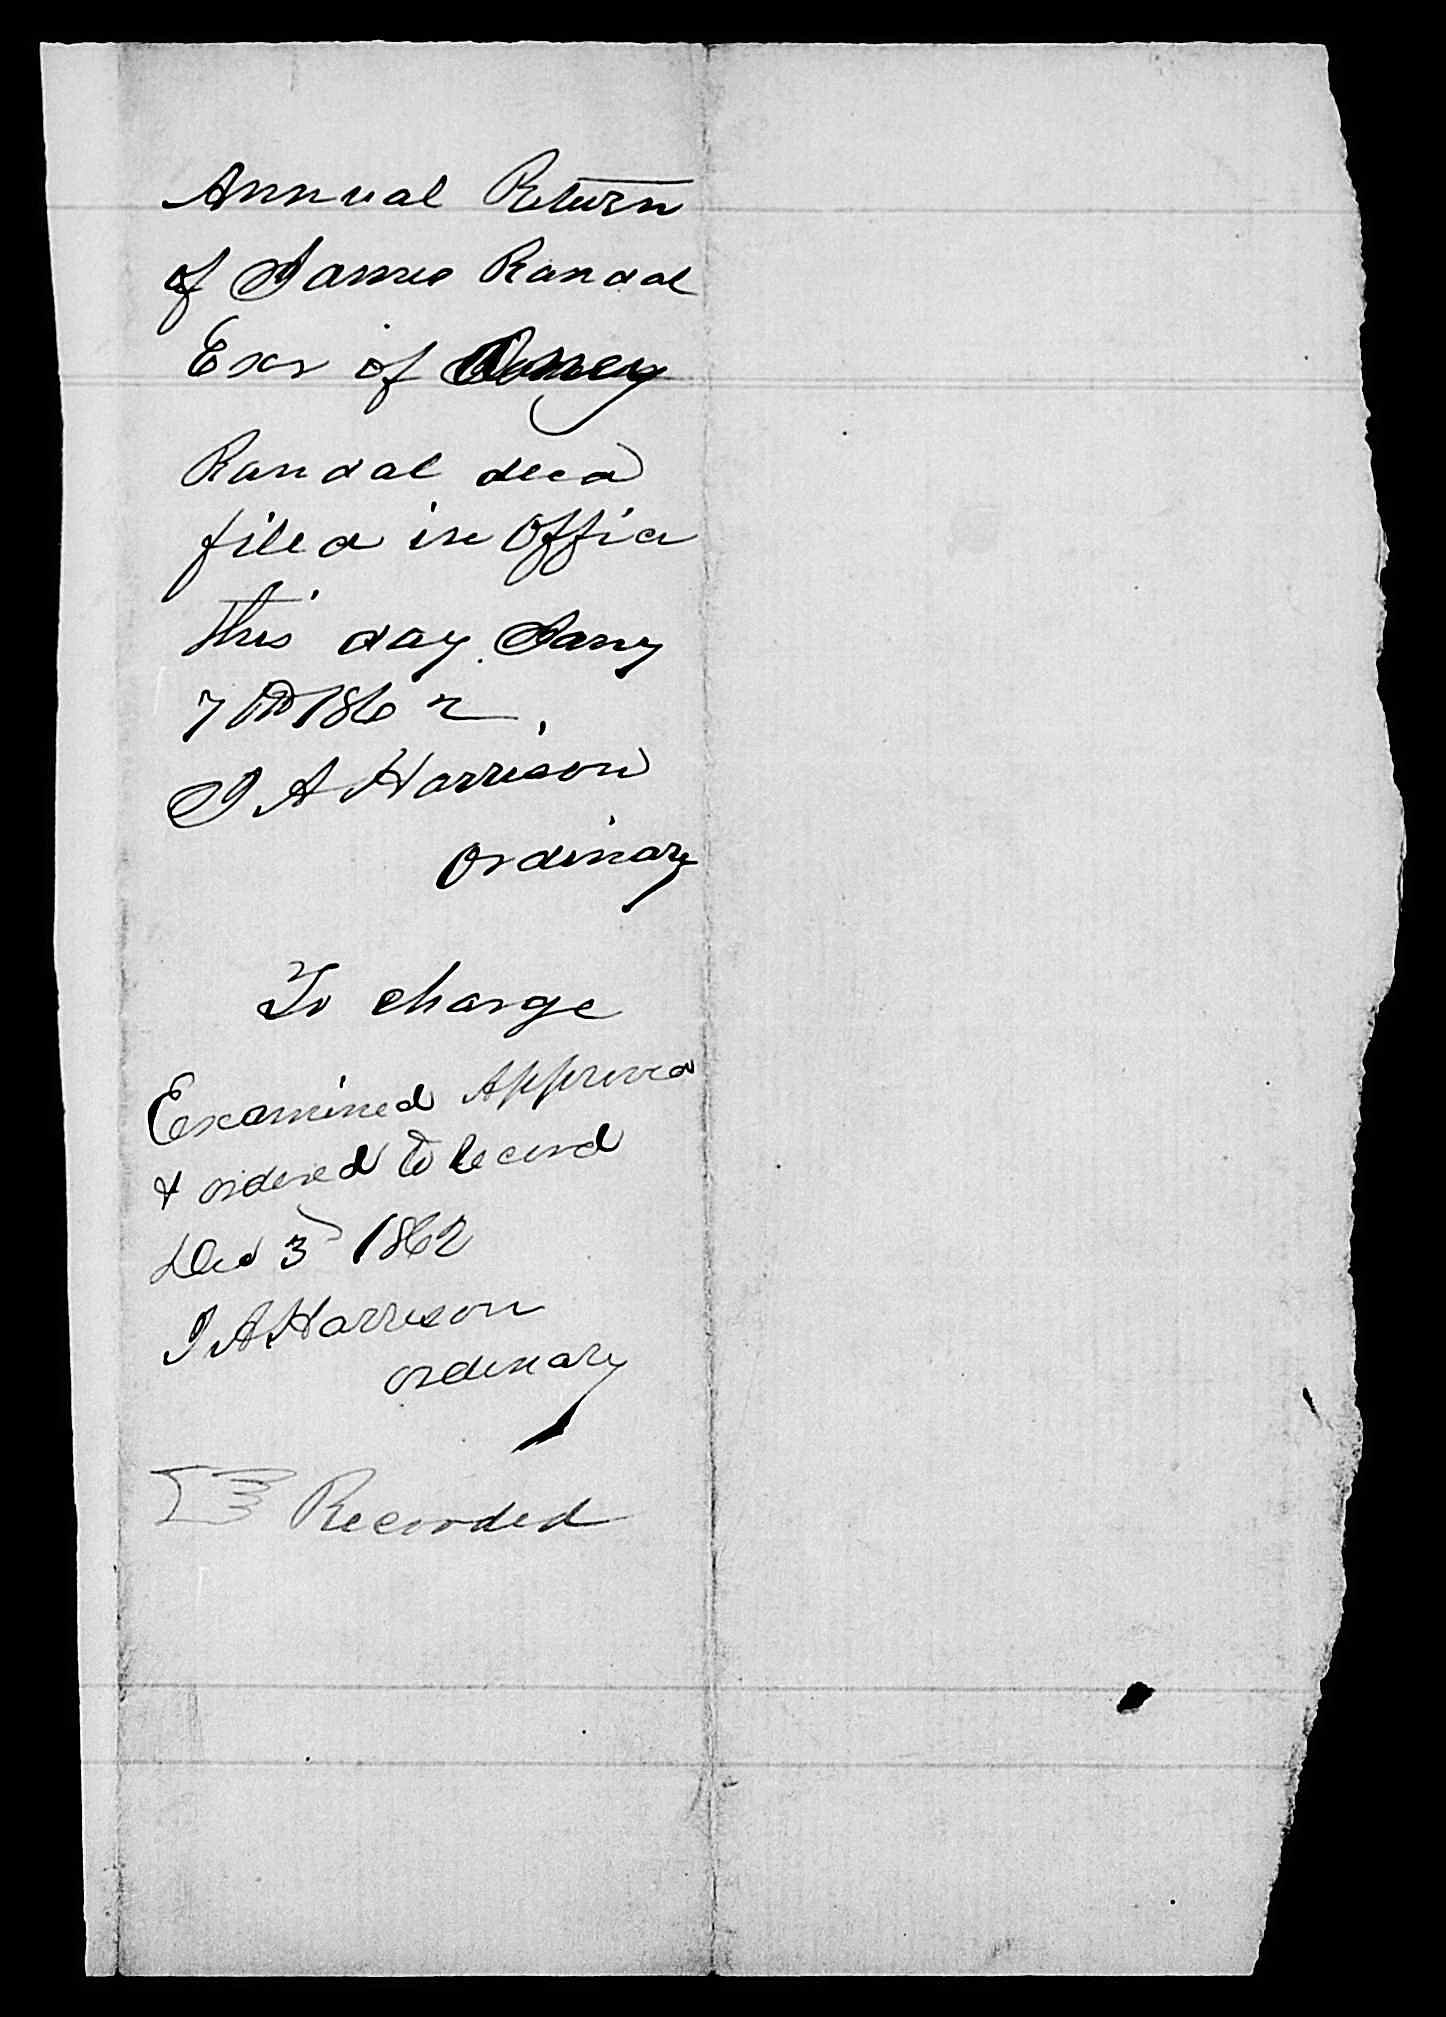 Annual Return
of James Randal
Exr of
Randal decd
filed in Office
this day Jany
7th 1862
J A Harrison
ordinary
To charge
Examined Approved
& ordered to Record
Dec 3d 1862
J A Harrison
ordinary
Recorded